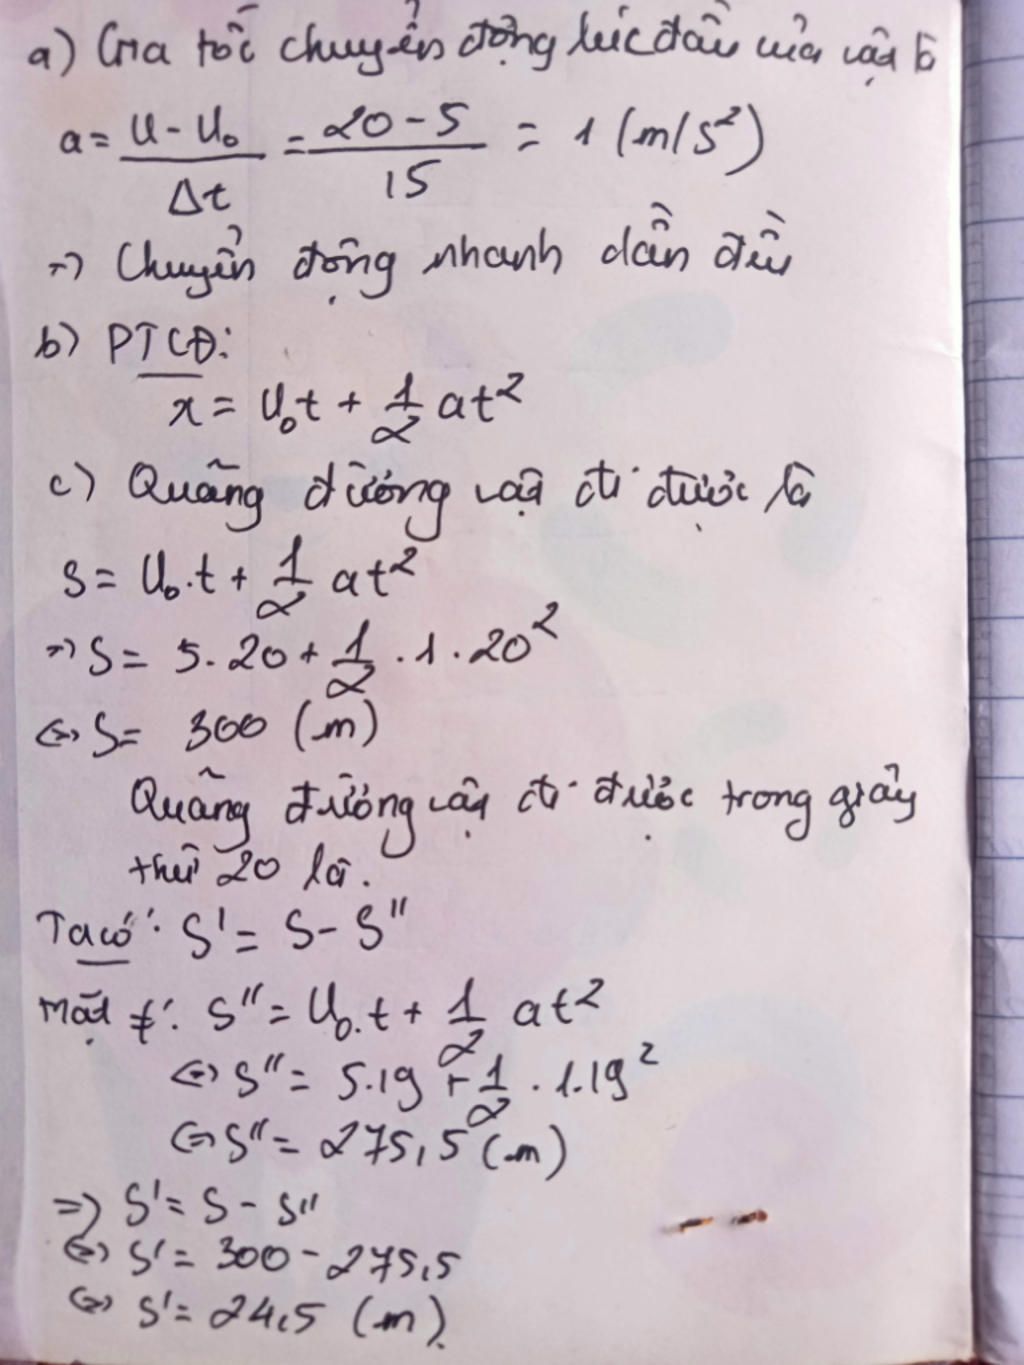 a) Gia tốc chuyển động lúc đầu của vật là
a = U - U₀ / Δt = 20 - 5 / 15 = 1 (m/s²)
=> Chuyển động nhanh dần đều
b) PTCĐ:
x = U₀t + 1/2 at²
c) Quãng đường vật đi được là
S = U₀.t + 1/2 at²
=> S = 5.20 + 1/2 . 1 . 20²
<=> S = 300 (m)
Quãng đường vật đi được trong giây
thứ 20 là.
Ta có: S' = S - S''
Mặt ≠: S'' = U₀.t + 1/2 at²
<=> S'' = 5.19 + 1/2 . 1.19²
<=> S'' = 275,5 (m)
=> S' = S - S''
<=> S' = 300 - 275,5
<=> S' = 24,5 (m).